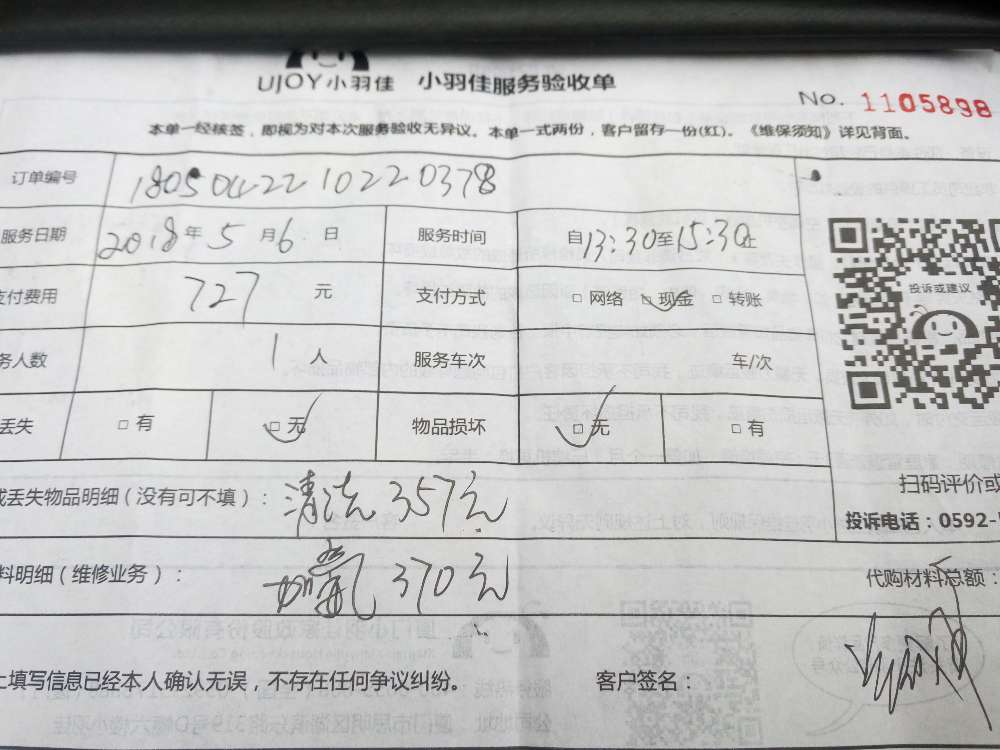 UJOY小羽佳 小羽佳服务验收单
No. 1105898
本单一经核签，即视为对本次服务验收无异议。本单一式两份，客户留存一份(红)。《维保须知》详见背面。
订单编号 1805042210220378
服务日期 2018年5月6日 服务时间 自13:30至15:30止
支付费用 727 元 支付方式 □ 网络 □ 现金 □ 转账
投诉或建议
务人数 1 人 服务车次 车/次
丢失 □ 有 □ 无 物品损坏 □ 无 □ 有
扫码评价或
或丢失物品明细（没有可不填）： 清洗 357元
投诉电话：0592-
料明细（维修业务）： 加氟 370元
代购材料总额：
上填写信息已经本人确认无误，不存在任何争议纠纷。 客户签名：